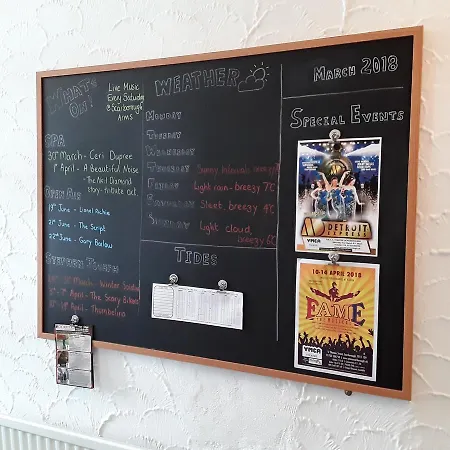 WHAT'S ON!
Live Music
Every Saturday
@Scarborough
Arms
SPA
30th March - Ceri Dupree
1st April - A Beautiful Noise
- The Neil Diamond
story - tribute act.
OPEN AIR
19th June - Lionel Richie
21st June - The Script
22nd June - Gary Barlow
STEPHEN JOSEPH
March - Winter Songs
April - The Scary Bikers
April - Thumbelina
WEATHER
MONDAY
TUESDAY
WEDNESDAY
THURSDAY Sunny Intervals, breezy
FRIDAY Light rain - breezy 7C
SATURDAY Sleet, breezy 4C
SUNDAY Light cloud,
breezy 6C
TIDES
MARCH 2018
SPECIAL EVENTS
DETROIT
EXPRESS
YMCA
10-14 APRIL 2018
FAME
YMCA